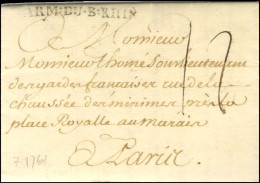 ARM.DU.B.RHIN
Monsieur
Monsieur thomé Sous lieutenant
des gardes francaises rue de la
chaussée des minimes pres la
place Royalle au marais
A Paris
12
7. 1761